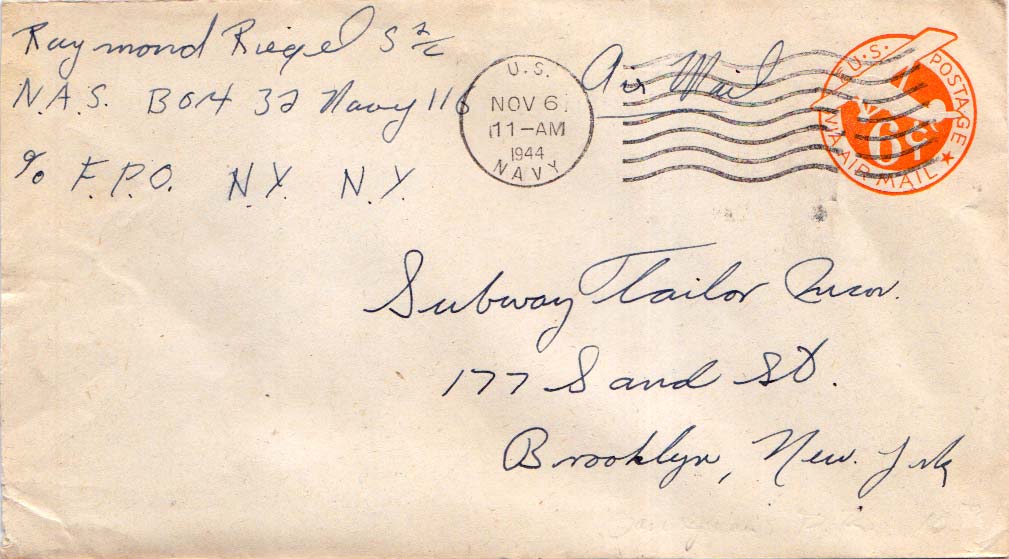 Raymond Riegel S 2/c
N.A.S. BOX 32 Navy 116
c/o F.P.O. N.Y. N.Y.
U.S.
NOV 6
11-AM
1944
NAVY
Air Mail
U.S. POSTAGE
6¢
VIA AIR MAIL
Subway Tailor
177 Sand St.
Brooklyn, New York